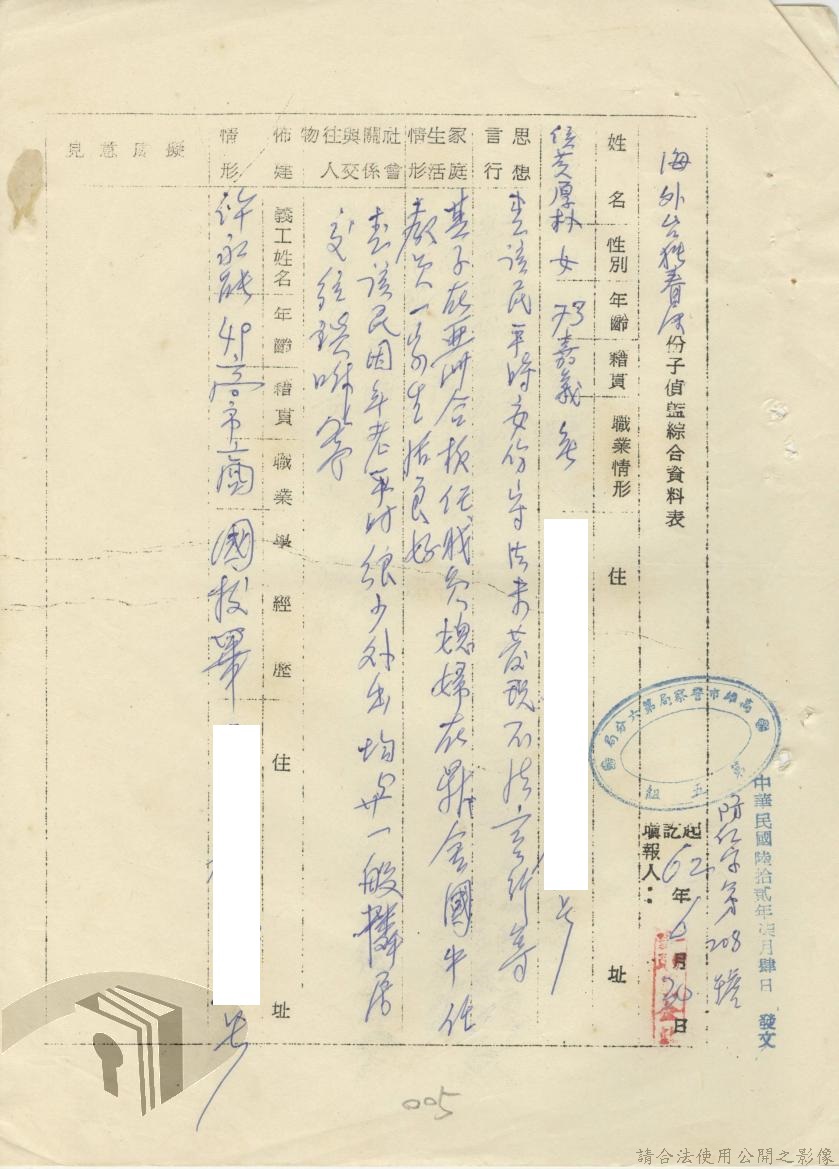 中華民國陸拾貳年柒月肆日 發文
防仁字第208號
高雄市警察局第六分局
第五組
起訖 62年6月20日
填報人：
海外台獨春風份子偵監綜合資料表
姓名 性別 年齡 籍貫 職業情形 住址
黃厚朴 女 73 嘉義 無
思想言行
查該民平時安份守法未發現不法言行等
家庭生活情形
其子在亞洲合板任職員媳婦在鼎金國中任
教員一家生活良好
社會關係與交往人物
查該民因年老平时很少外出均與一般鄰居
交往談聊等
佈建情形
義工姓名 年齡 籍貫 職業 學經歷 住址
許永能 49 高市 商 國校畢
擬處意見
005
請合法使用公開之影像